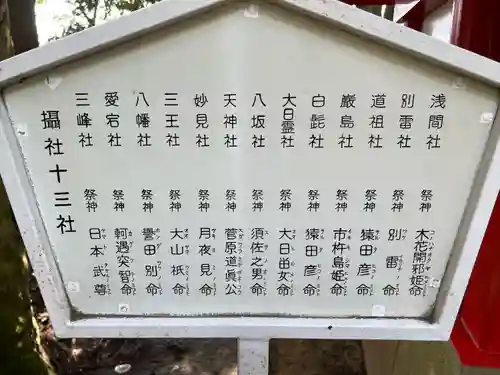 浅間社　祭神　木花開邪姫命
別雷社　祭神　別雷命
道祖社　祭神　猿田彦命
厳島社　祭神　市杵島姫命
白髭社　祭神　猿田彦命
大日霊社　祭神　大日孁女命
八坂社　祭神　須佐之男命
天神社　祭神　菅原道眞公
妙見社　祭神　月夜見命
三王社　祭神　大山祇命
八幡社　祭神　誉田別命
愛宕社　祭神　軻遇突智命
三峰社　祭神　日本武尊
攝社十三社